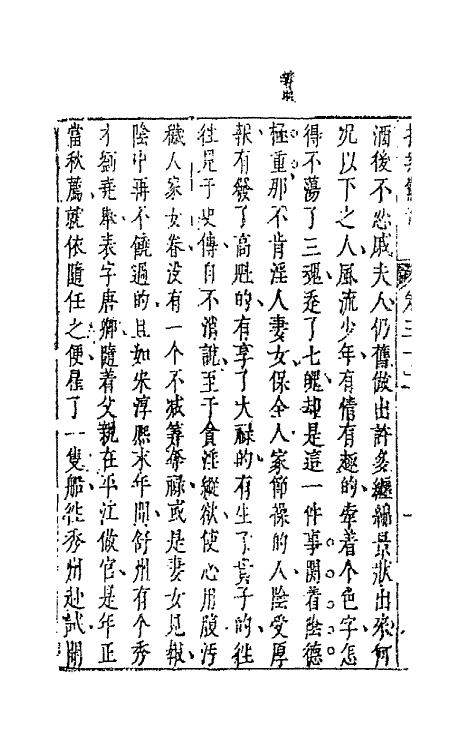 拍案驚奇 卷三十二
酒後不忍戚夫人仍舊做出許多纏綿景狀出來何
况以下之人風流少年有情有趣的牽着个色字怎
得不蕩了三魂丢了七魄却是這一件事關着陰德
極重那不肯淫人妻女保全人家節操的人陰受厚
報有發了高魁的有享了大祿的有生了貴子的往
往見于史傳自不消說至于貪淫縱欲使心用腹汚
穢人家女眷沒有一个不减筭奪祿或是妻女見報
陰中再不饒過的且如宋淳熙末年間舒州有个秀
才劉堯舉表字唐卿隨着父親在平江做官是年正
當秋薦就依隨任之便雇了一隻船往秀州赴試開